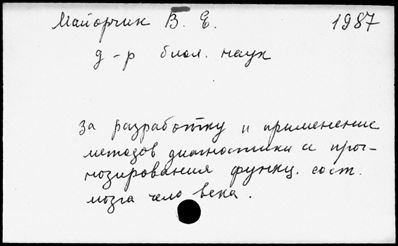 Майорчик В. Е. 1987
д-р биол. наук
за разработку и применение
методов диагностики и прог-
нозирования функц. сост.
мозга чело века.